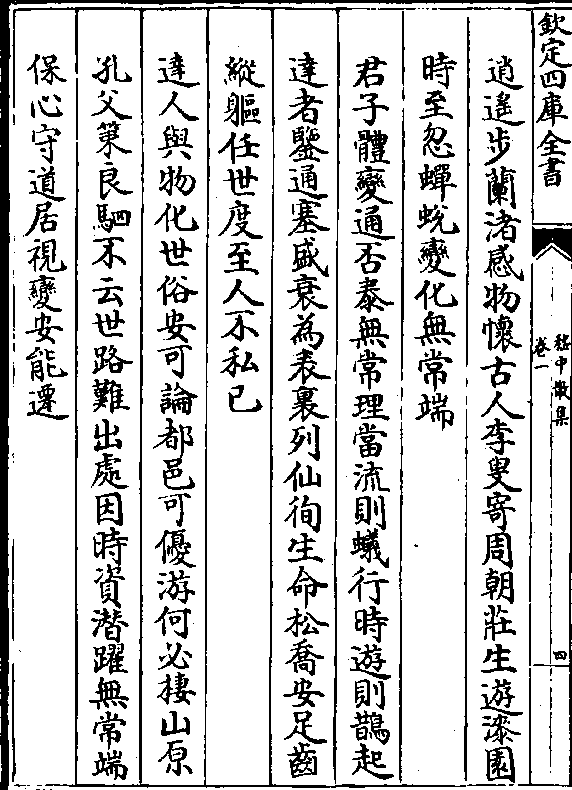 欽定四庫全書
嵇中散集
卷一
四
逍遙步蘭渚感物懷古人李叟寄周朝莊生遊漆園
時至忽蟬蛻變化無常端
君子體變通否泰無常理當流則蟻行時遊則鵲起
達者鑒通塞盛衰為表裏列仙徇生命松喬安足齒
縱軀任世度至人不私已
達人與物化世俗安可論都邑可優游何必棲山原
孔父策良駟不云世路難出處因時資潛躍無常端
保心守道居視變安能遷